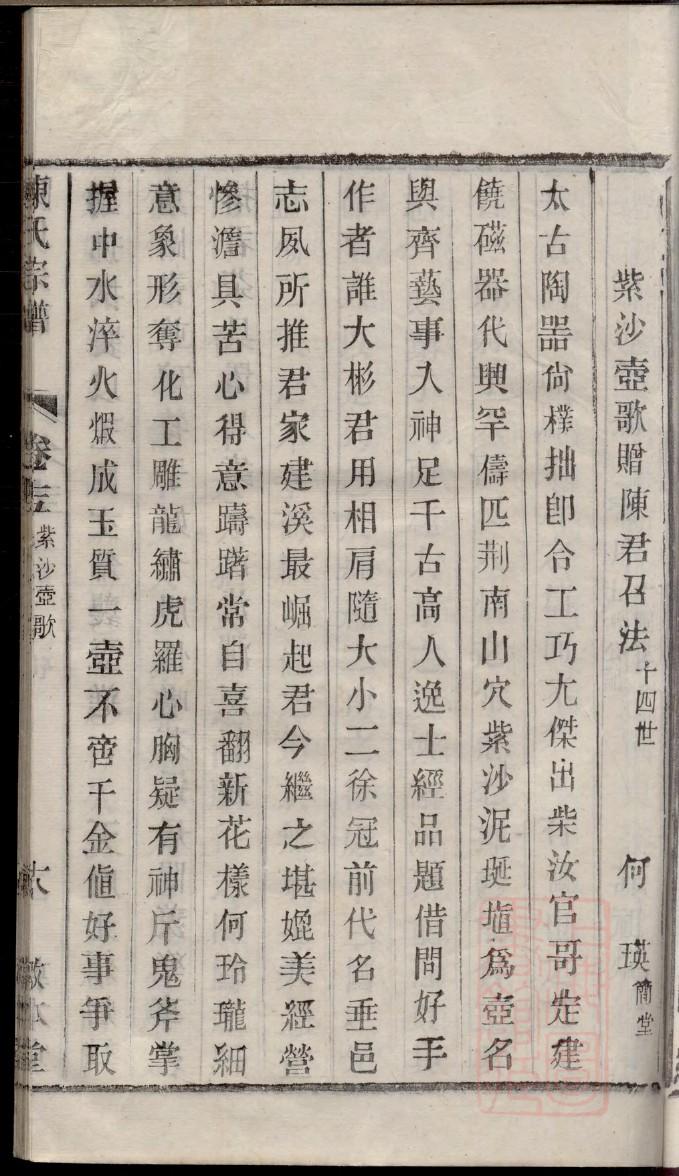 紫沙壺歌贈陳君召法十四世 何瑛簡堂
太古陶器尙樸拙卽令工巧尢傑出柴汝官哥定建
饒磁器代興罕儔匹荆南山穴紫沙泥埏埴爲壺名
與齊藝事入神足千古高人逸士經品題借問好手
作者誰大彬君用相肩隨大小二徐冠前代名垂邑
志夙所推君家建溪最崛起君今繼之堪媲美經營
慘澹具苦心得意躊躇常自喜翻新花樣何玲瓏細
意象形奪化工雕龍繡虎羅心胸疑有神斤鬼斧掌
握中水淬火煆成玉質一壺不啻千金値好事爭取
陳氏宗譜 卷 紫沙壺歌 敝本堂